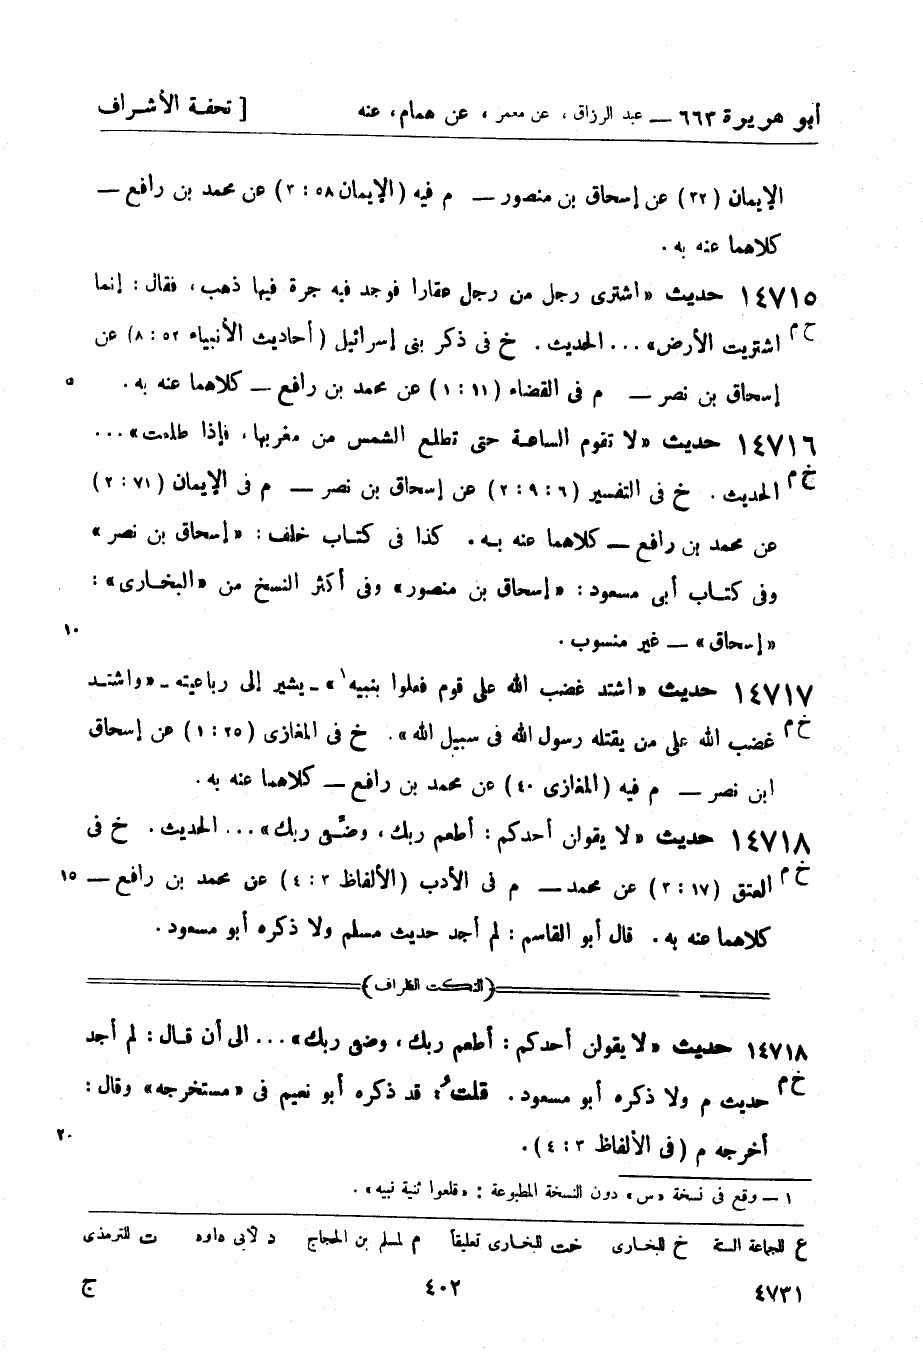 أبو هريرة ٦٦٣ — عبد الرزاق، عن معمر، عن همام، عنه [ تحفة الأشراف
الإيمان (٣٢) عن إسحاق بن منصور — م فيه (الإيمان ٥٨ : ٣) عن محمد بن رافع —
كلاهما عنه به.
١٤٧١٥ حديث «اشترى رجل من رجل عقارا فوجد فيه جرة فيها ذهب، فقال: إنما
خ م اشتريت الأرض»... الحديث. خ فى ذكر بنى إسرائيل (أحاديث الأنبياء ٥٢ : ٨) عن
إسحاق بن نصر — م فى القضاء (١١ : ١) عن محمد بن رافع — كلاهما عنه به. ٥
١٤٧١٦ حديث «لا تقوم الساعة حتى تطلع الشمس من مغربها، فإذا طلعت»...
خ م الحديث. خ فى التفسير (٦ : ٩ : ٢) عن إسحاق بن نصر — م فى الإيمان (٧١ : ٢)
عن محمد بن رافع — كلاهما عنه به. كذا فى كتاب خلف: «إسحاق بن نصر»
وفى كتاب أبى مسعود: «إسحاق بن منصور» وفى أكثر النسخ من «البخارى»:
«إسحاق» — غير منسوب. ١٠
١٤٧١٧ حديث «اشتد غضب الله على قوم فعلوا بنبيه١» ـ يشير إلى رباعيته ـ «واشتد
خ م غضب الله على من يقتله رسول الله فى سبيل الله». خ فى المغازى (٢٥ : ١) عن إسحاق
ابن نصر — م فيه (المغازى ٤٠) عن محمد بن رافع — كلاهما عنه به.
١٤٧١٨ حديث «لا يقولن أحدكم: أطعم ربك، وضّئ ربك»... الحديث. خ فى
خ م العتق (١٧ : ٣) عن محمد — م فى الأدب (الألفاظ ٣ : ٤) عن محمد بن رافع — ١٥
كلاهما عنه به. قال أبو القاسم: لم أجد حديث مسلم ولا ذكره أبو مسعود.
(النكت الظراف)
١٤٧١٨ حديث «لا يقولن أحدكم: أطعم ربك، وضئ ربك»... الى أن قال: لم أجد
خ م حديث م ولا ذكره أبو مسعود. قلتُ: قد ذكره أبو نعيم فى «مستخرجه» وقال:
أخرجه م (فى الألفاظ ٣ : ٤). ٢٠
١ — وقع فى نسخة «س» دون النسخة المطبوعة: «قلعوا ثنية نبيه».
ع للجماعة الستة خ للبخارى خت للبخارى تعليقاً م لمسلم بن الحجاج د لأبى داود ت للترمذى
٤٧٣١ ٤٠٢ ج